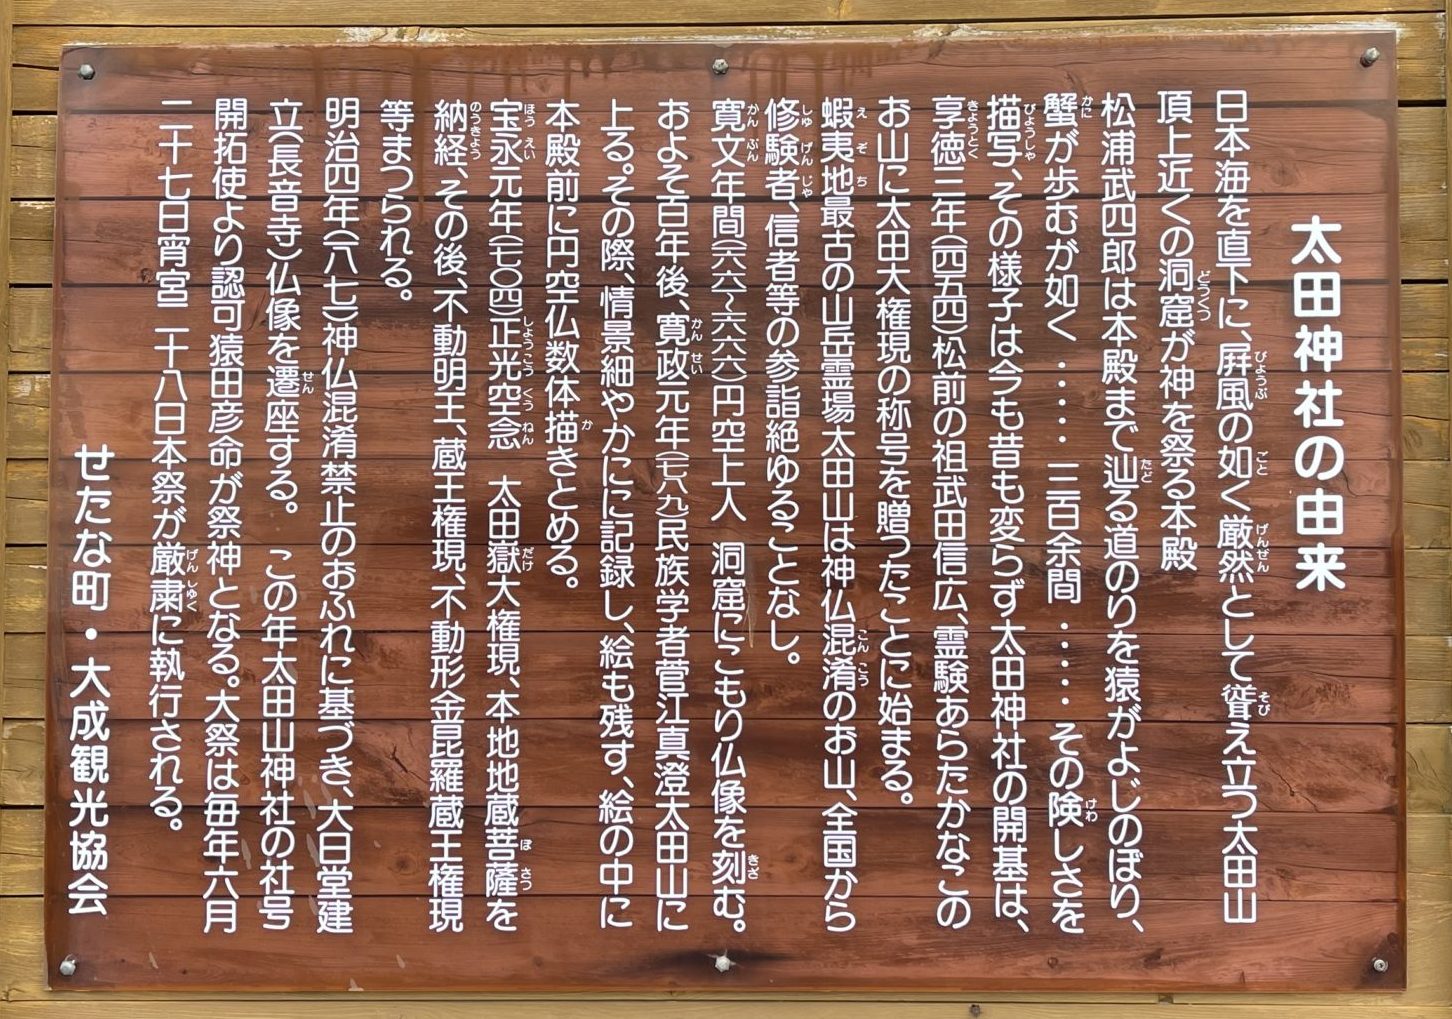 太田神社の由来
日本海を直下に、屛風の如く厳然として聳え立つ太田山
頂上近くの洞窟が神を祭る本殿
松浦武四郎は本殿まで辿る道のりを猿がよじのぼり、
蟹が歩むが如く ・・・・・ 三百余間 ・・・・・ その険しさを
描写、その様子は今も昔も変らず太田神社の開基は、
享徳三年(一四五四)松前の祖武田信広、霊験あらたかなこの
お山に太田大権現の称号を贈ったことに始まる。
蝦夷地最古の山岳霊場太田山は神仏混淆のお山、全国から
修験者、信者等の参詣絶ゆることなし。
寛文年間(一六六一〜一六六六)円空上人 洞窟にこもり仏像を刻む。
およそ百年後、寛政元年(一七八九)民族学者菅江真澄太田山に
上る。その際、情景細やかにに記録し、絵も残す、絵の中に
本殿前に円空仏数体描きとめる。
宝永元年(一七〇四)正光空念 太田獄大権現、本地地蔵菩薩を
納経、その後、不動明王、蔵王権現、不動形金昆羅蔵王権現
等まつられる。
明治四年(一八七一)神仏混淆禁止のおふれに基づき、大日堂建
立(長音寺)仏像を遷座する。 この年太田山神社の社号
開拓使より認可猿田彦命が祭神となる。大祭は毎年六月
二十七日宵宮 二十八日本祭が厳粛に執行される。
せたな町・大成観光協会